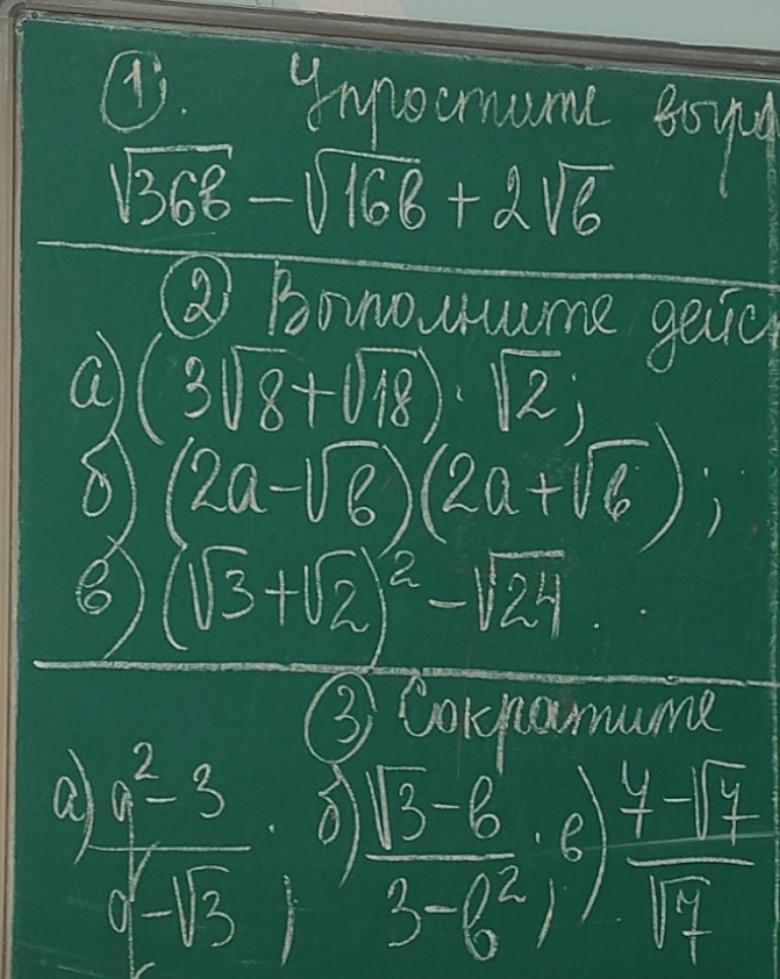 1. Упростите выра
√36в − √16в + 2√в
2 Выполните дейс
а) (3√8 + √18) · √2;
б) (2а − √в)(2а + √в);
в) (√3 + √2)² − √24.
3 Сократите
а) (q² − 3)/(q − √3); б) (√3 − в)/(3 − в²); в) (7 − √7)/√7